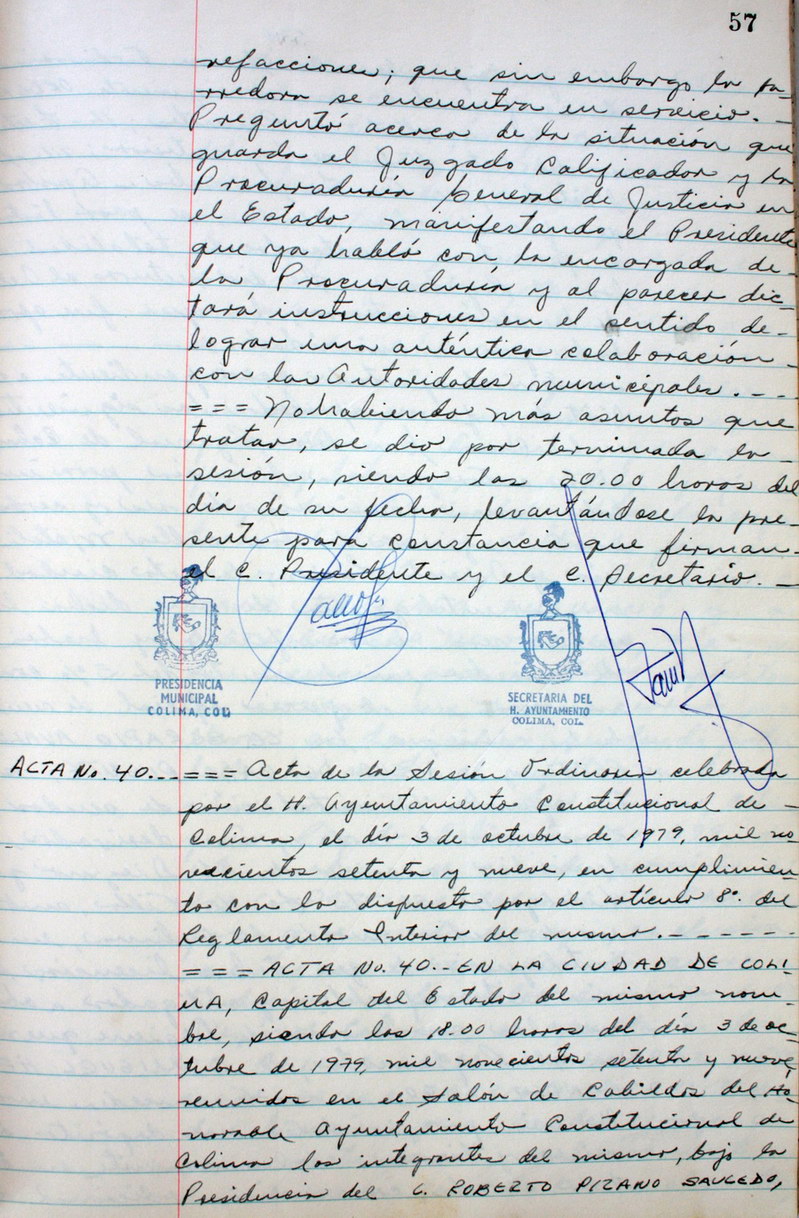 57
refacciones; que sin embargo la ba-
rredora se encuentra en servicio. -
Preguntó acerca de la situación que
guarda el Juzgado Calificador y la
Procuraduría General de Justicia en
el Estado, manifestando el Presidente
que ya habló con la encargada de-
la Procuraduría y al parecer dic-
tará instrucciones en el sentido de-
lograr una auténtica colaboración -
con las Autoridades municipales. - - -
= = = No habiendo más asuntos que
tratar, se dio por terminada la -
sesión, siendo las 20.00 horas del
día de su fecha, levantándose la pre-
sente para constancia que firman-
el C. Presidente y el C. Secretario. -
PRESIDENCIA
MUNICIPAL
COLIMA, COL.
SECRETARIA DEL
H. AYUNTAMIENTO
COLIMA, COL.
ACTA No. 40. - - = = = Acta de la Sesión Ordinaria celebrada
por el H. Ayuntamiento Constitucional de -
Colima, el día 3 de octubre de 1979, mil no
vecientos setenta y nueve, en cumplimien-
to con lo dispuesto por el artículo 8°. del
Reglamento Interior del mismo. - - - - - -
= = = ACTA No. 40. - EN LA CIUDAD DE COLI-
MA, Capital del Estado del mismo nom-
bre, siendo las 18.00 horas del día 3 de oc-
tubre de 1979, mil novecientos setenta y nueve,
reunidos en el Salón de Cabildos del Ho-
norable Ayuntamiento Constitucional de
Colima los integrantes del mismo, bajo la
Presidencia del C. ROBERTO PIZANO SAUCEDO,